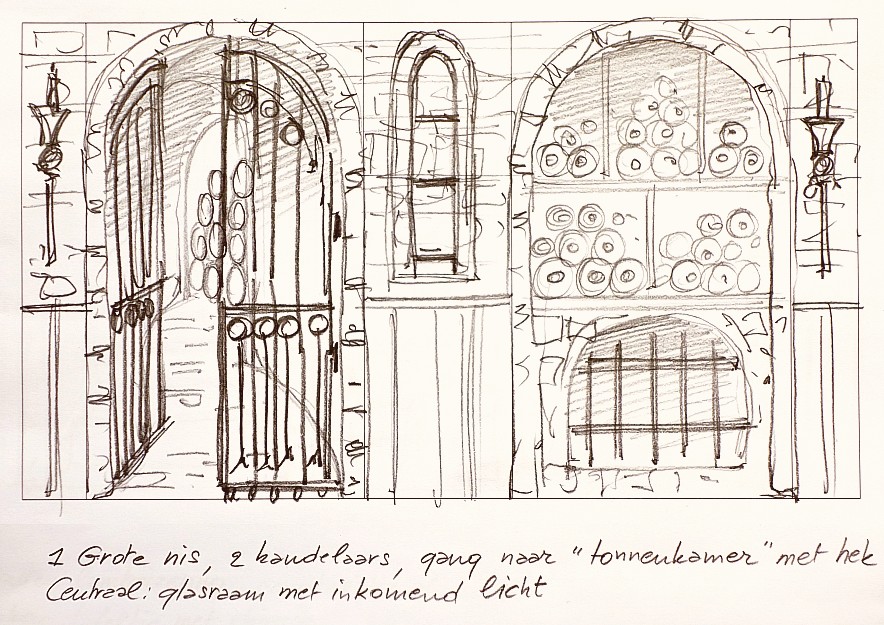 1 Grote nis, 2 kandelaars, gang naar "tonnenkamer" met hek
Centraal: glasraam met inkomend licht